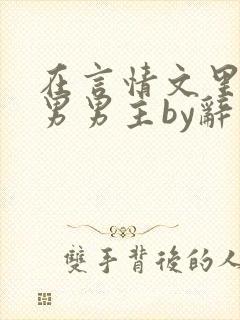 在言情文里
男男主by辭
雙手背後的人